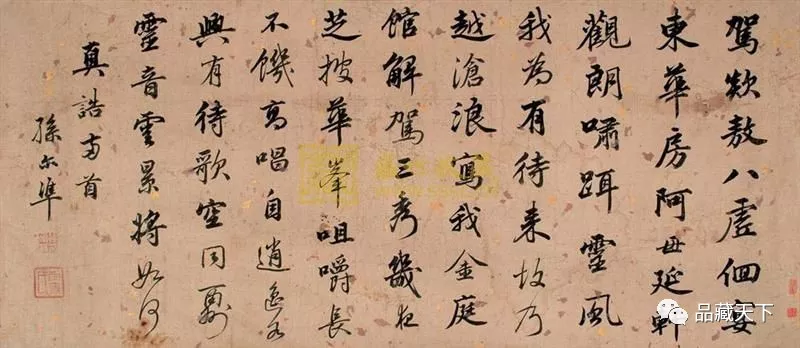 駕欻敖八虛佪宴
東華房阿母延軒
觀朗嘯躡靈風
我為有待來故乃
越滄浪寫我金庭
館解駕三秀畿夜
芝披華峯咀嚼長
不饑高唱自逍遙各
興有待歌空同
靈音雲景將如何
真誥兩首
孫尔準
品藏天下